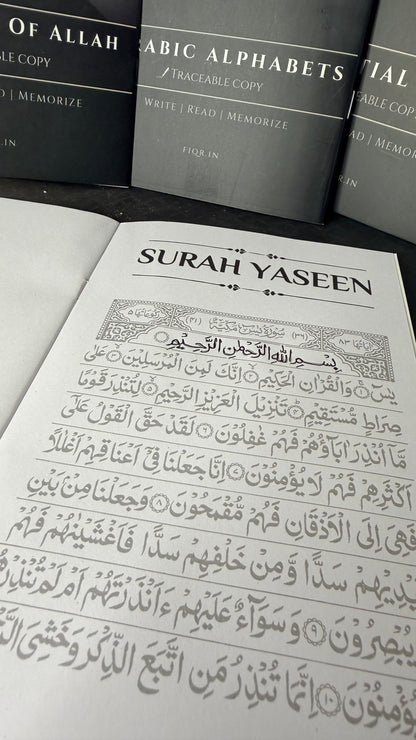 OF ALLAH
BLE COPY
D | MEMORIZE
FIQR.IN
ABIC ALPHABETS
TRACEABLE COPY
WRITE | READ | MEMORIZE
FIQR.IN
TIAL
EABLE COPY
AD | MEMOR
R.IN
SURAH YASEEN
اٰیاتها ٨٣ (٣٦) سُوْرَةُ يٰسٓ مَكِّيَّةٌ (٤١) رکوعاتها ٥
بِسْمِ اللّٰهِ الرَّحْمٰنِ الرَّحِيْمِ
يٰسٓ ۝١ وَالْقُرْاٰنِ الْحَكِيْمِ ۝٢ اِنَّكَ لَمِنَ الْمُرْسَلِيْنَ ۝٣ عَلٰى
صِرَاطٍ مُّسْتَقِيْمٍ ۝٤ تَنْزِيْلَ الْعَزِيْزِ الرَّحِيْمِ ۝٥ لِتُنْذِرَ قَوْمًا
مَّاۤ اُنْذِرَ اٰبَآؤُهُمْ فَهُمْ غٰفِلُوْنَ ۝٦ لَقَدْ حَقَّ الْقَوْلُ عَلٰۤى
اَكْثَرِهِمْ فَهُمْ لَا يُؤْمِنُوْنَ ۝٧ اِنَّا جَعَلْنَا فِيْۤ اَعْنَاقِهِمْ اَغْلٰلًا
فَهِيَ اِلَى الْاَذْقَانِ فَهُمْ مُّقْمَحُوْنَ ۝٨ وَجَعَلْنَا مِنْۢ بَيْنِ
يْدِيْهِمْ سَدًّا وَّمِنْ خَلْفِهِمْ سَدًّا فَاَغْشَيْنٰهُمْ فَهُمْ
يُبْصِرُوْنَ ۝٩ وَسَوَآءٌ عَلَيْهِمْ ءَاَنْذَرْتَهُمْ اَمْ لَمْ تُنْذِرْهُ
ؤْمِنُوْنَ ۝١٠ اِنَّمَا تُنْذِرُ مَنِ اتَّبَعَ الذِّكْرَ وَخَشِيَ